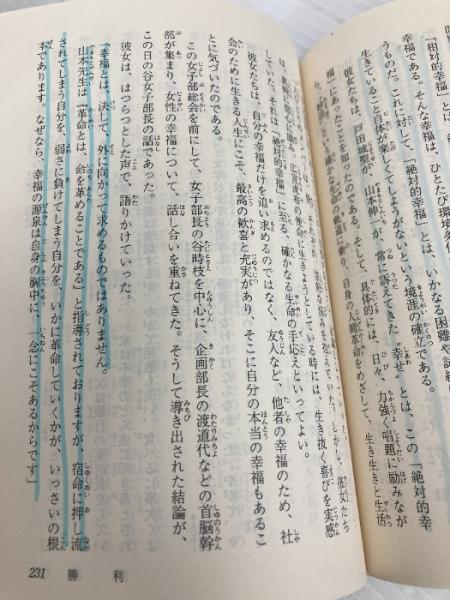 「相対的幸福」とは
幸福である。そんな幸福は、ひとたび環境
うものだ。これに対して、「絶対的幸福」とは、いかなる困難や試練
生きていること自体が楽しくてしようがないという境涯の確立である。
彼女たちは、戸田城聖が、山本伸一が常に訴えてきた〝幸せ〟とは、この「絶対的幸
福」にあったことを知ったのである。そして、具体的には、日々、力強く唱題に励みなが
生命の軌道に乗り、自身の人間革命をめざして、生き生きと生活
しかし、彼女たち
は、真剣に信心に励み、広宣流布の使命に生きようとしている時には、生き抜く喜びを実感
していた。それは「絶対的幸福」に至る、確かなる生命の手応えといってよい。
彼女たちは、自分の幸福だけを追い求めるのではなく、友人など、他者の幸福のため、社
会のために生きる人生にこそ、最高の歓喜と充実があり、そこに自分の本当の幸福もあるこ
とに気づいたのである。
この女子部総会を前にして、女子部長の谷時枝を中心に、企画部長の渡道代などの首脳幹
部が集まり、女性の幸福について、話し合いを重ねてきた。そうして導き出された結論が、
この日の谷女子部長の話であった。
彼女は、はつらつとした声で、語りかけていった。
「幸福とは、決して、外に向かって求めるものではありません。
山本先生は『革命とは、命を革めることである』と指導されておりますが、宿命に押し流
されてしまう自分を、弱さに負けてしまう自分を、いかに革命していくかが、いっさいの根
本であります。なぜなら、幸福の源泉は自身の胸中に、一念にこそあるからです」
231 勝利